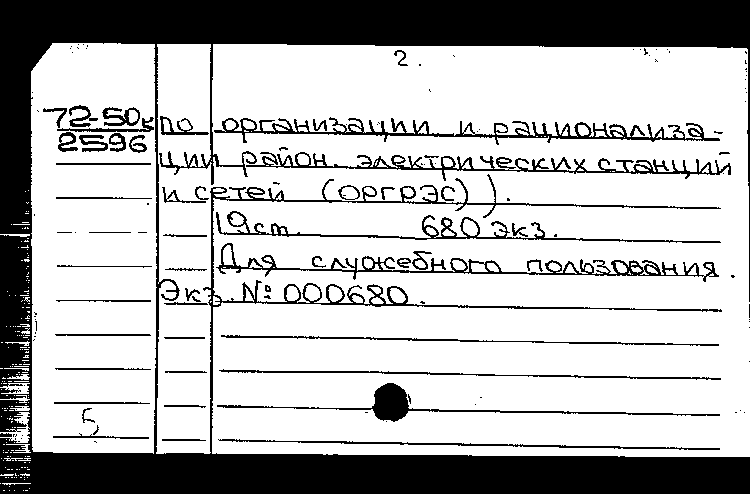 2.
72-50к по организации и рационализа-
2596
ции район. электрических станций
и сетей (ОРГРЭС)).
19 ст. 680 экз.
Для служебного пользования.
Экз. №000680.
5